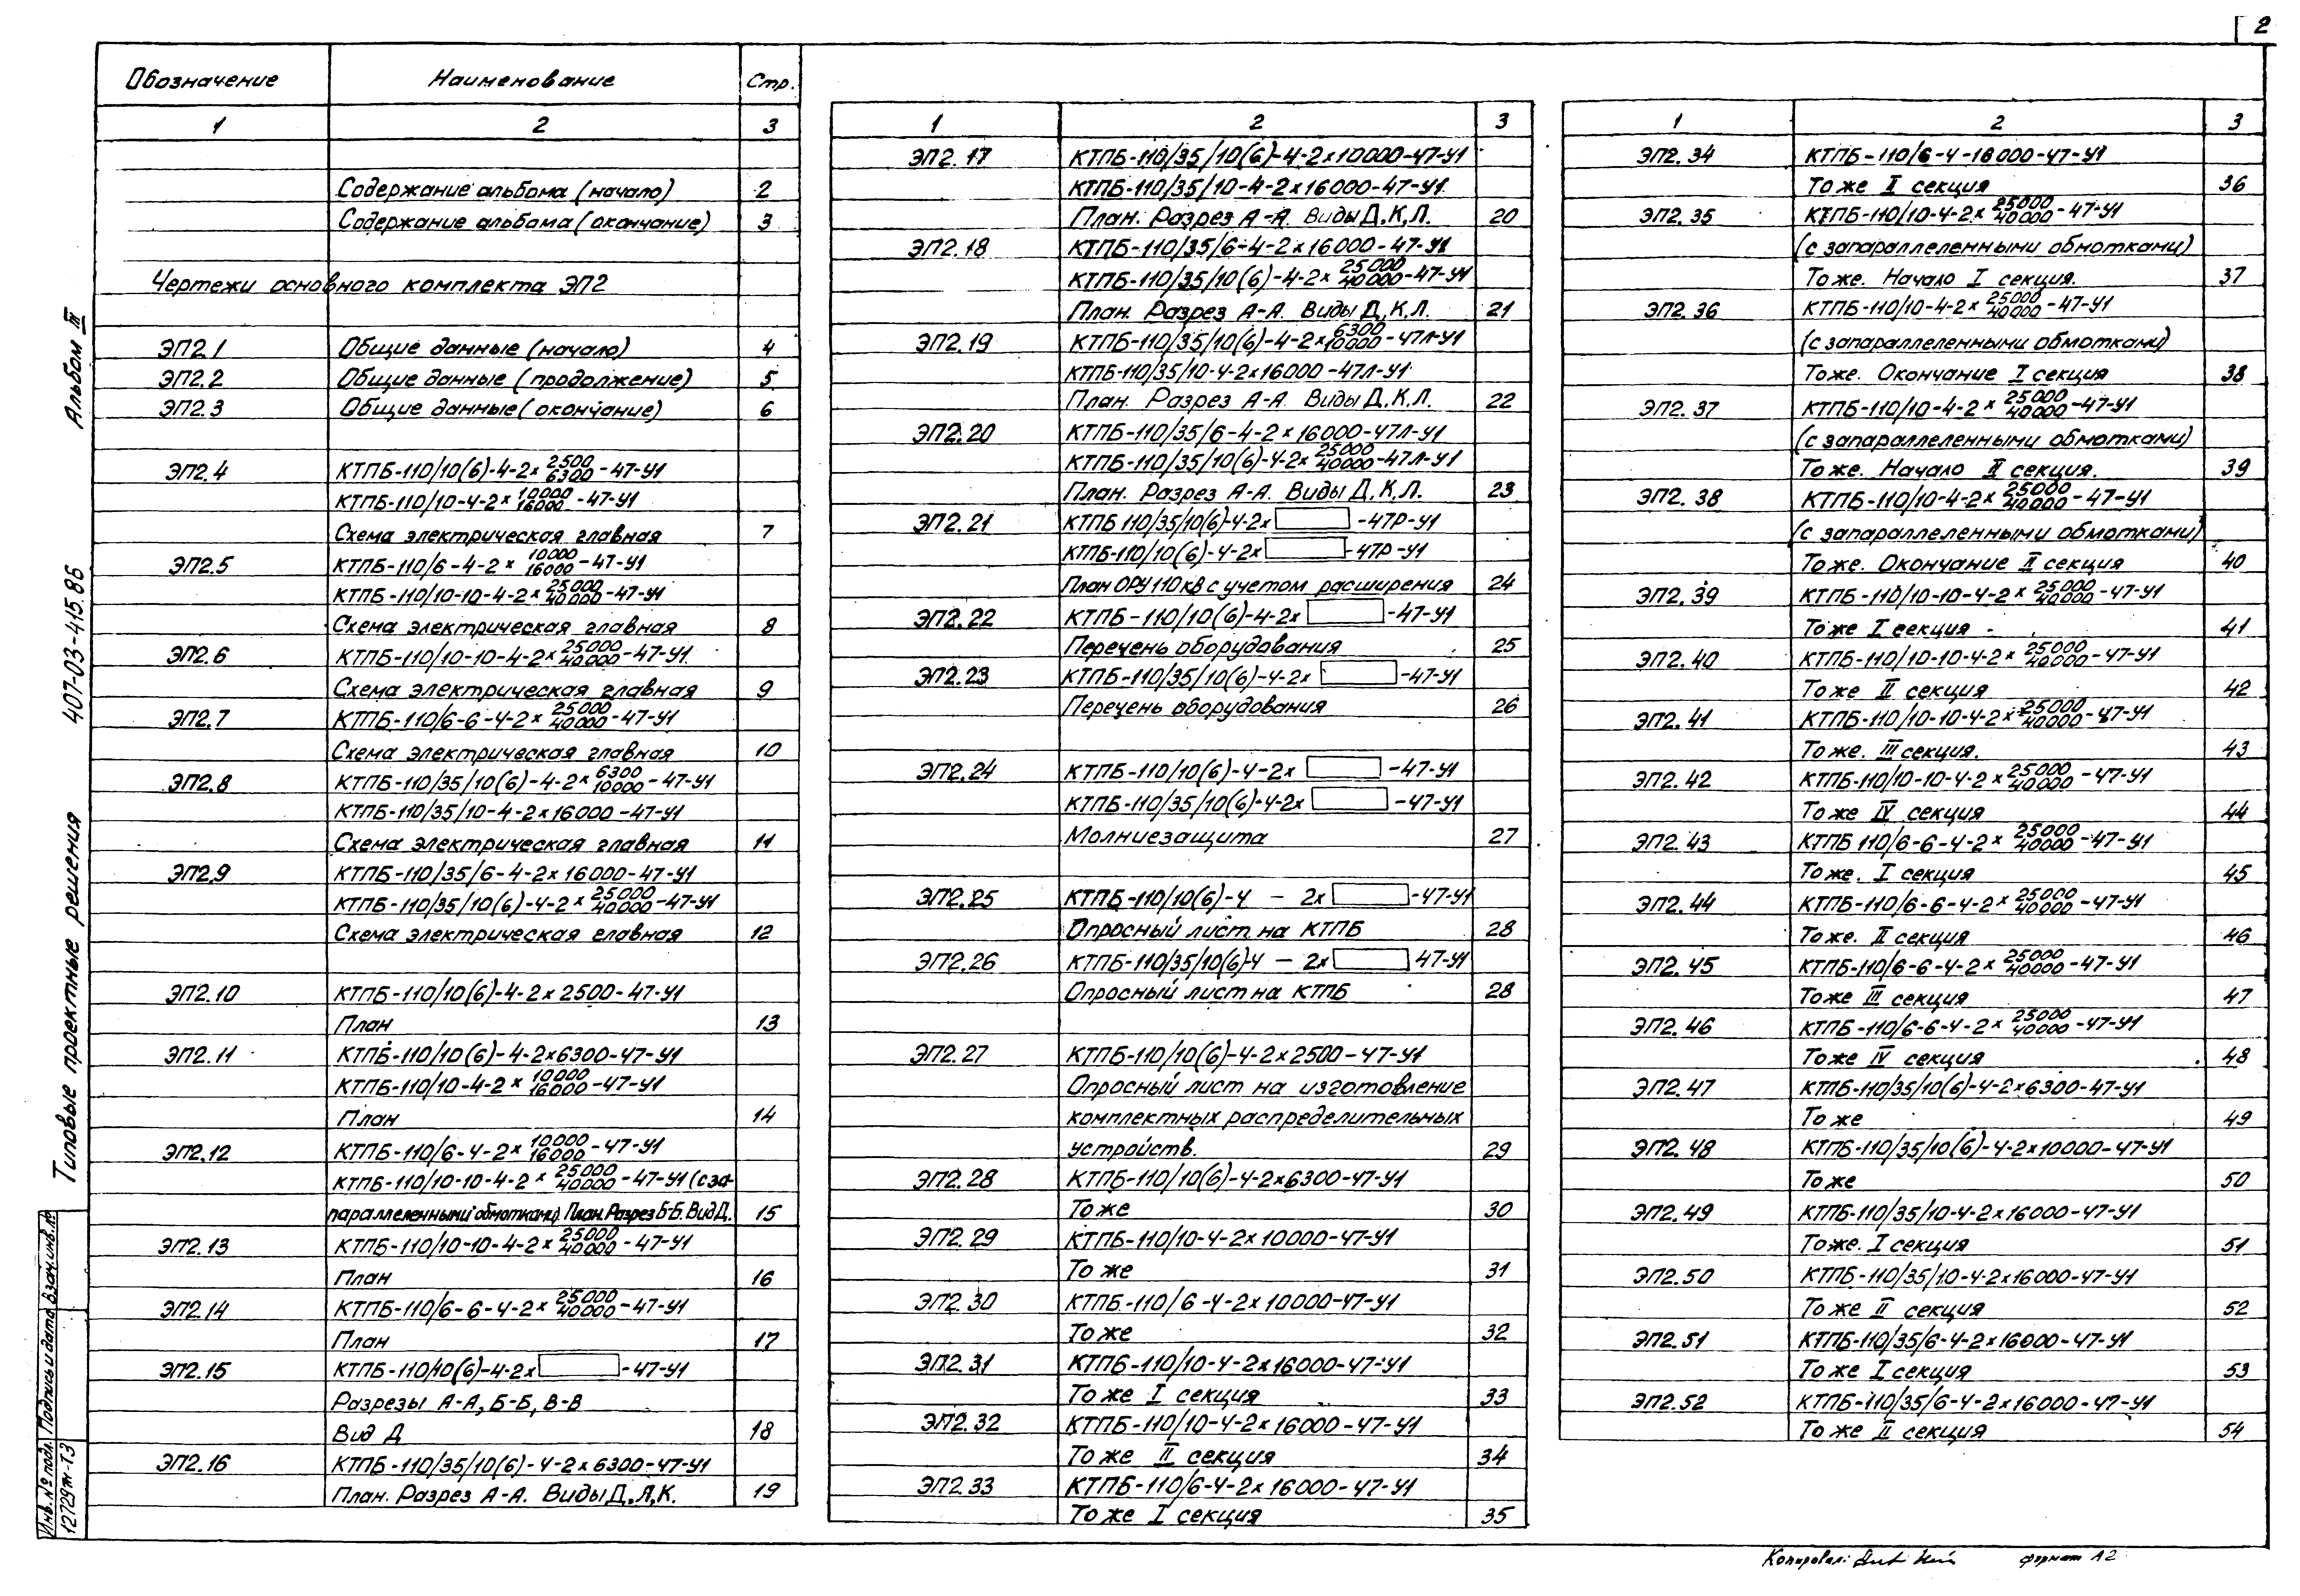 2
Обозначение Наименование Стр.
1 2 3
Содержание альбома (начало) 2
Содержание альбома (окончание) 3
Чертежи основного комплекта ЭП2
ЭП2.1 Общие данные (начало) 4
ЭП2.2 Общие данные (продолжение) 5
ЭП2.3 Общие данные (окончание) 6
ЭП2.4 КТПБ-110/10(6)-4-2×2500/6300-47-У1
КТПБ-110/10-4-2×10000/16000-47-У1
Схема электрическая главная 7
ЭП2.5 КТПБ-110/6-4-2×10000/16000-47-У1
КТПБ-110/10-10-4-2×25000/40000-47-У1
Схема электрическая главная 8
ЭП2.6 КТПБ-110/10-10-4-2×25000/40000-47-У1
Схема электрическая главная 9
ЭП2.7 КТПБ-110/6-6-4-2×25000/40000-47-У1
Схема электрическая главная 10
ЭП2.8 КТПБ-110/35/10(6)-4-2×6300/10000-47-У1
КТПБ-110/35/10-4-2×16000-47-У1
Схема электрическая главная 11
ЭП2.9 КТПБ-110/35/6-4-2×16000-47-У1
КТПБ-110/35/10(6)-4-2×25000/40000-47-У1
Схема электрическая главная 12
ЭП2.10 КТПБ-110/10(6)-4-2×2500-47-У1
План 13
ЭП2.11 КТПБ-110/10(6)-4-2×6300-47-У1
КТПБ-110/10-4-2×10000/16000-47-У1
План 14
ЭП2.12 КТПБ-110/6-4-2×10000/16000-47-У1
КТПБ-110/10-10-4-2×25000/40000-47-У1 (с за-
параллеленными обмотками) План. Разрез Б-Б. Вид Д. 15
ЭП2.13 КТПБ-110/10-10-4-2×25000/40000-47-У1
План 16
ЭП2.14 КТПБ-110/6-6-4-2×25000/40000-47-У1
План 17
ЭП2.15 КТПБ-110/10(6)-4-2× -47-У1
Разрезы А-А, Б-Б, В-В
Вид Д 18
ЭП2.16 КТПБ-110/35/10(6)-4-2×6300-47-У1
План. Разрез А-А. Виды Д,Л,К. 19
1 2 3
ЭП2.17 КТПБ-110/35/10(6)-4-2×10000-47-У1
КТПБ-110/35/10-4-2×16000-47-У1
План. Разрез А-А. Виды Д,К,Л. 20
ЭП2.18 КТПБ-110/35/6-4-2×16000-47-У1
КТПБ-110/35/10(6)-4-2×25000/40000-47-У1
План. Разрез А-А. Виды Д,К,Л. 21
ЭП2.19 КТПБ-110/35/10(6)-4-2×6300/10000-47Л-У1
КТПБ-110/35/10-4-2×16000-47Л-У1
План. Разрез А-А. Виды Д,К,Л. 22
ЭП2.20 КТПБ-110/35/6-4-2×16000-47Л-У1
КТПБ-110/35/10(6)-4-2×25000/40000-47Л-У1
План. Разрез А-А. Виды Д,К,Л. 23
ЭП2.21 КТПБ 110/35/10(6)-4-2× -47Р-У1
КТПБ-110/10(6)-4-2× -47Р-У1
План ОРУ 110 кв с учетом расширения 24
ЭП2.22 КТПБ-110/10(6)-4-2× -47-У1
Перечень оборудования 25
ЭП2.23 КТПБ-110/35/10(6)-4-2× -47-У1
Перечень оборудования 26
ЭП2.24 КТПБ-110/10(6)-4-2× -47-У1
КТПБ-110/35/10(6)-4-2× -47-У1
Молниезащита 27
ЭП2.25 КТПБ-110/10(6)-4 - 2× -47-У1
Опросный лист на КТПБ 28
ЭП2.26 КТПБ-110/35/10(6)-4 - 2× 47-У1
Опросный лист на КТПБ 28
ЭП2.27 КТПБ-110/10(6)-4-2×2500-47-У1
Опросный лист на изготовление
комплектных распределительных
устройств. 29
ЭП2.28 КТПБ-110/10(6)-4-2×6300-47-У1
То же 30
ЭП2.29 КТПБ-110/10-4-2×10000-47-У1
То же 31
ЭП2.30 КТПБ-110/6-4-2×10000-47-У1
То же 32
ЭП2.31 КТПБ-110/10-4-2×16000-47-У1
То же I секция 33
ЭП2.32 КТПБ-110/10-4-2×16000-47-У1
То же II секция 34
ЭП2.33 КТПБ-110/6-4-2×16000-47-У1
То же I секция 35
1 2 3
ЭП2.34 КТПБ-110/6-4-16000-47-У1
То же II секция 36
ЭП2.35 КТПБ-110/10-4-2×25000/40000-47-У1
(с запараллеленными обмотками)
То же. Начало I секция. 37
ЭП2.36 КТПБ-110/10-4-2×25000/40000-47-У1
(с запараллеленными обмотками)
То же. Окончание I секция 38
ЭП2.37 КТПБ-110/10-4-2×25000/40000-47-У1
(с запараллеленными обмотками)
То же. Начало II секция. 39
ЭП2.38 КТПБ-110/10-4-2×25000/40000-47-У1
(с запараллеленными обмотками)
То же. Окончание II секция 40
ЭП2.39 КТПБ-110/10-10-4-2×25000/40000-47-У1
То же I секция 41
ЭП2.40 КТПБ-110/10-10-4-2×25000/40000-47-У1
То же II секция 42
ЭП2.41 КТПБ-110/10-10-4-2×25000/40000-47-У1
То же. III секция. 43
ЭП2.42 КТПБ-110/10-10-4-2×25000/40000-47-У1
То же IV секция 44
ЭП2.43 КТПБ 110/6-6-4-2×25000/40000-47-У1
То же. I секция 45
ЭП2.44 КТПБ-110/6-6-4-2×25000/40000-47-У1
То же. II секция 46
ЭП2.45 КТПБ-110/6-6-4-2×25000/40000-47-У1
То же III секция 47
ЭП2.46 КТПБ-110/6-6-4-2×25000/40000-47-У1
То же IV секция 48
ЭП2.47 КТПБ-110/35/10(6)-4-2×6300-47-У1
То же 49
ЭП2.48 КТПБ-110/35/10(6)-4-2×10000-47-У1
То же 50
ЭП2.49 КТПБ-110/35/10-4-2×16000-47-У1
То же. I секция 51
ЭП2.50 КТПБ-110/35/10-4-2×16000-47-У1
То же II секция 52
ЭП2.51 КТПБ-110/35/6-4-2×16000-47-У1
То же I секция 53
ЭП2.52 КТПБ-110/35/6-4-2×16000-47-У1
То же II секция 54
Типовые проектные решения 407-03-415.86 Альбом III
Инв.№ подл. Подпись и дата Взам.инв.№
12729тм-Т3
Копировал: формат А2